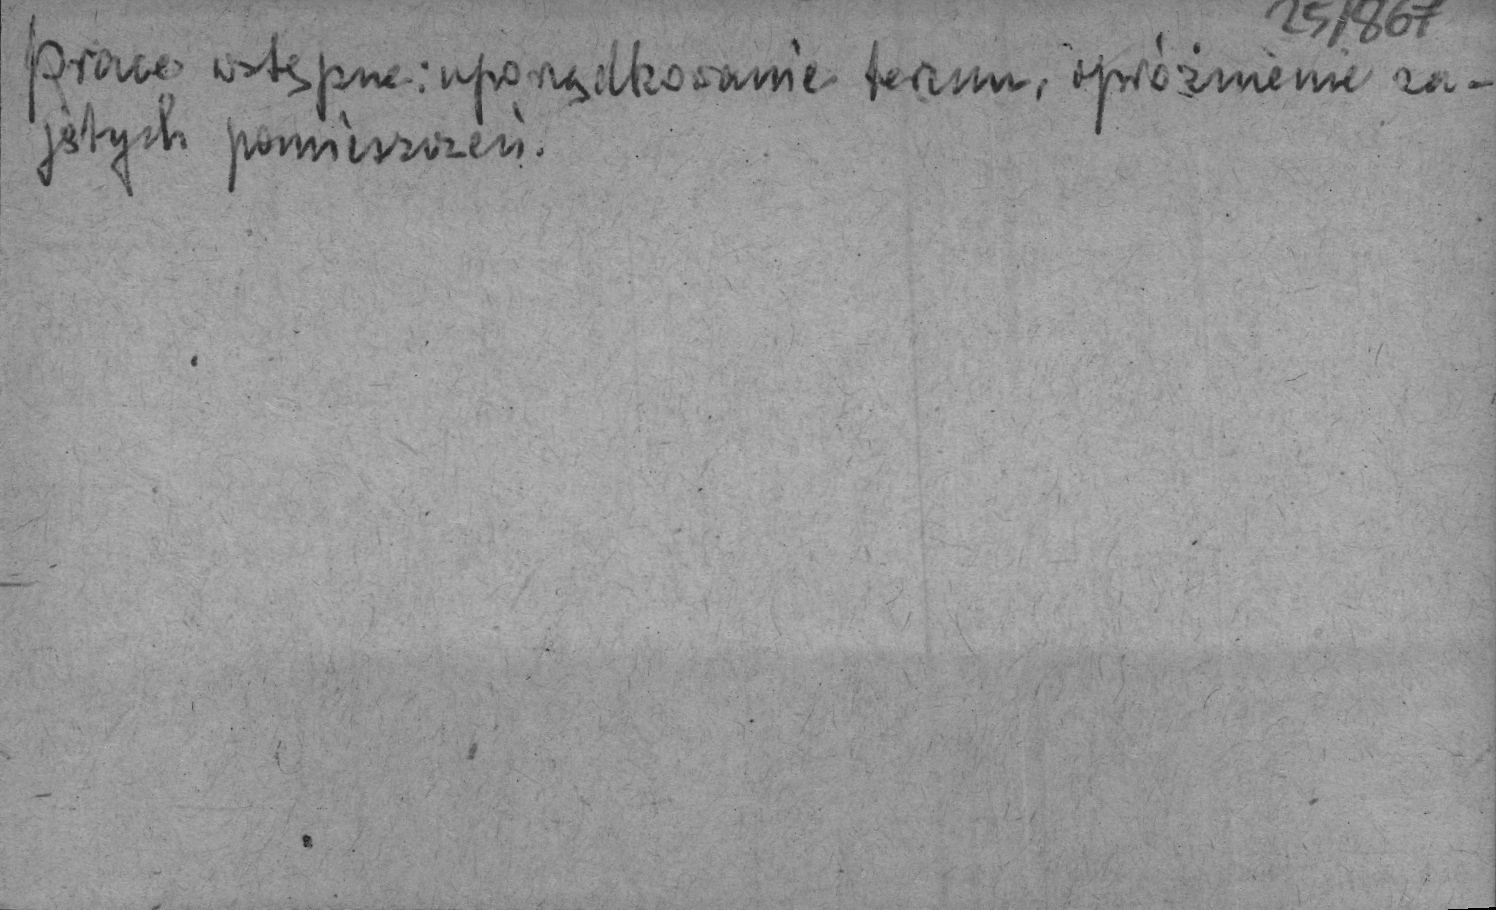 25/867
Prace wstępne: uporządkowanie terenu, opróżnienie za-
jętych pomieszczeń.